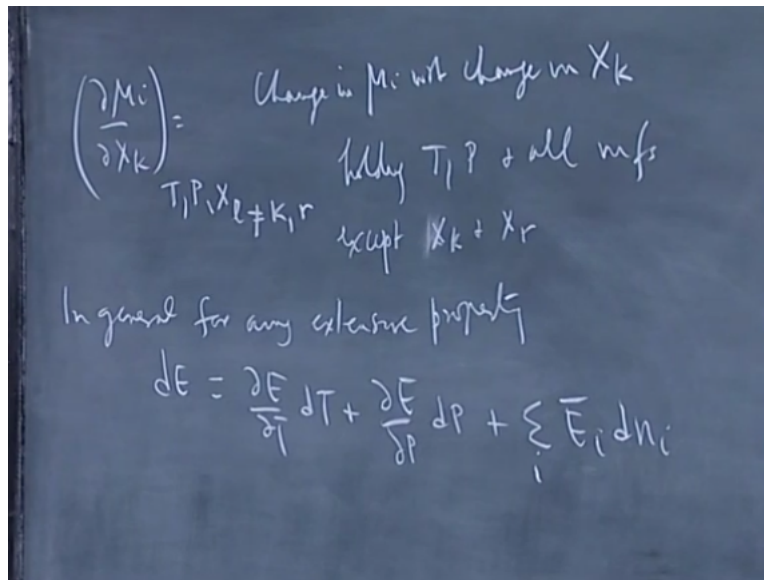 (∂μi/∂Xk)T,P,Xl≠k,r = Change in μi with change in Xk
holding T, P & all mfs
except Xk & Xr
In general for any extensive property
dE = ∂E/∂T dT + ∂E/∂P dP + Σi Ēi dni